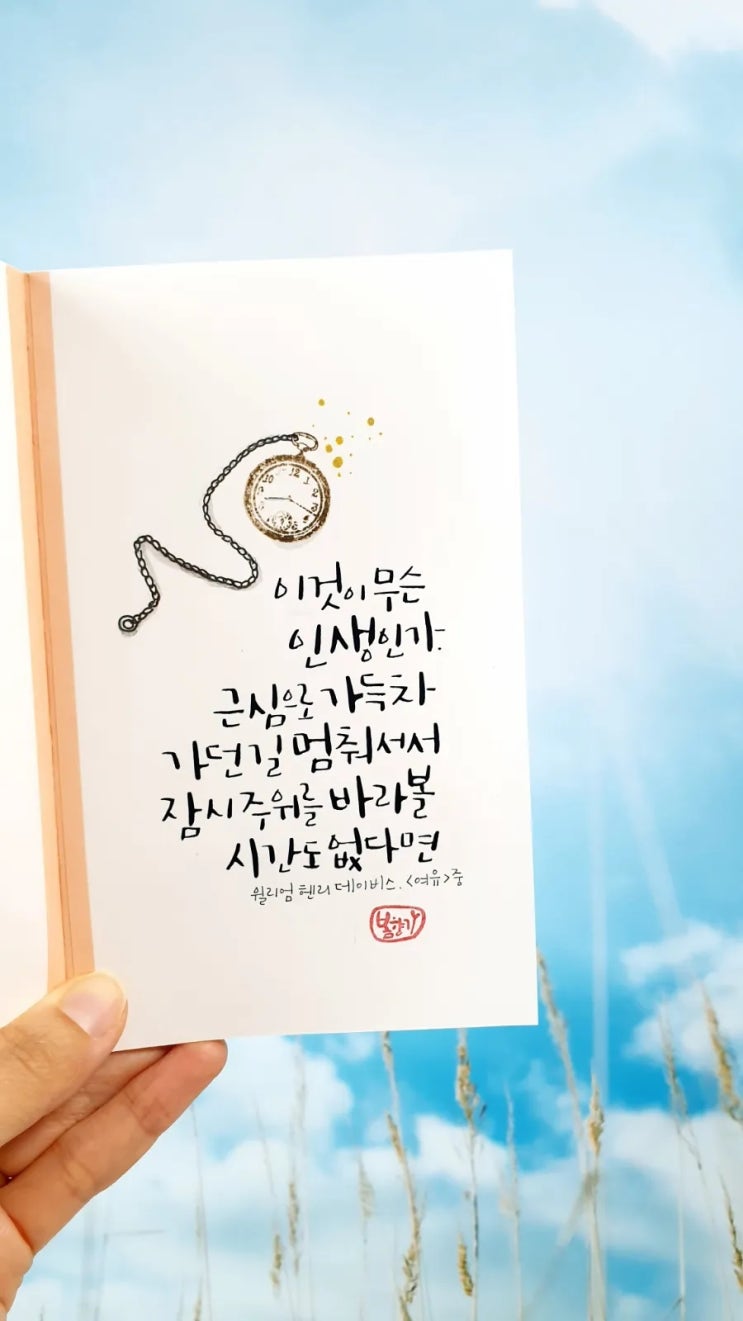 이것이 무슨
인생인가.
근심으로 가득차
가던 길 멈춰서서
잠시 주위를 바라볼
시간도 없다면
윌리엄 헨리 데이비스. <여유> 중